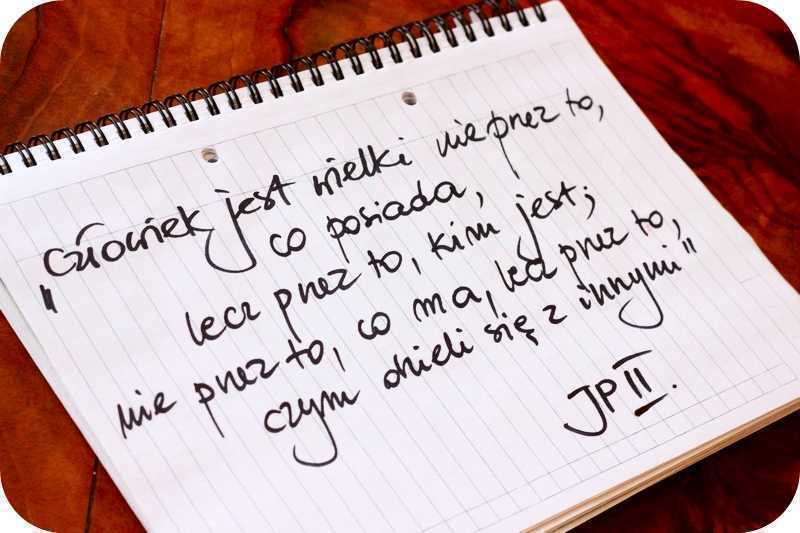 "Człowiek jest wielki nie przez to,
co posiada,
lecz przez to, kim jest;
nie przez to, co ma, lecz przez to,
czym dzieli się z innymi"
JP II.